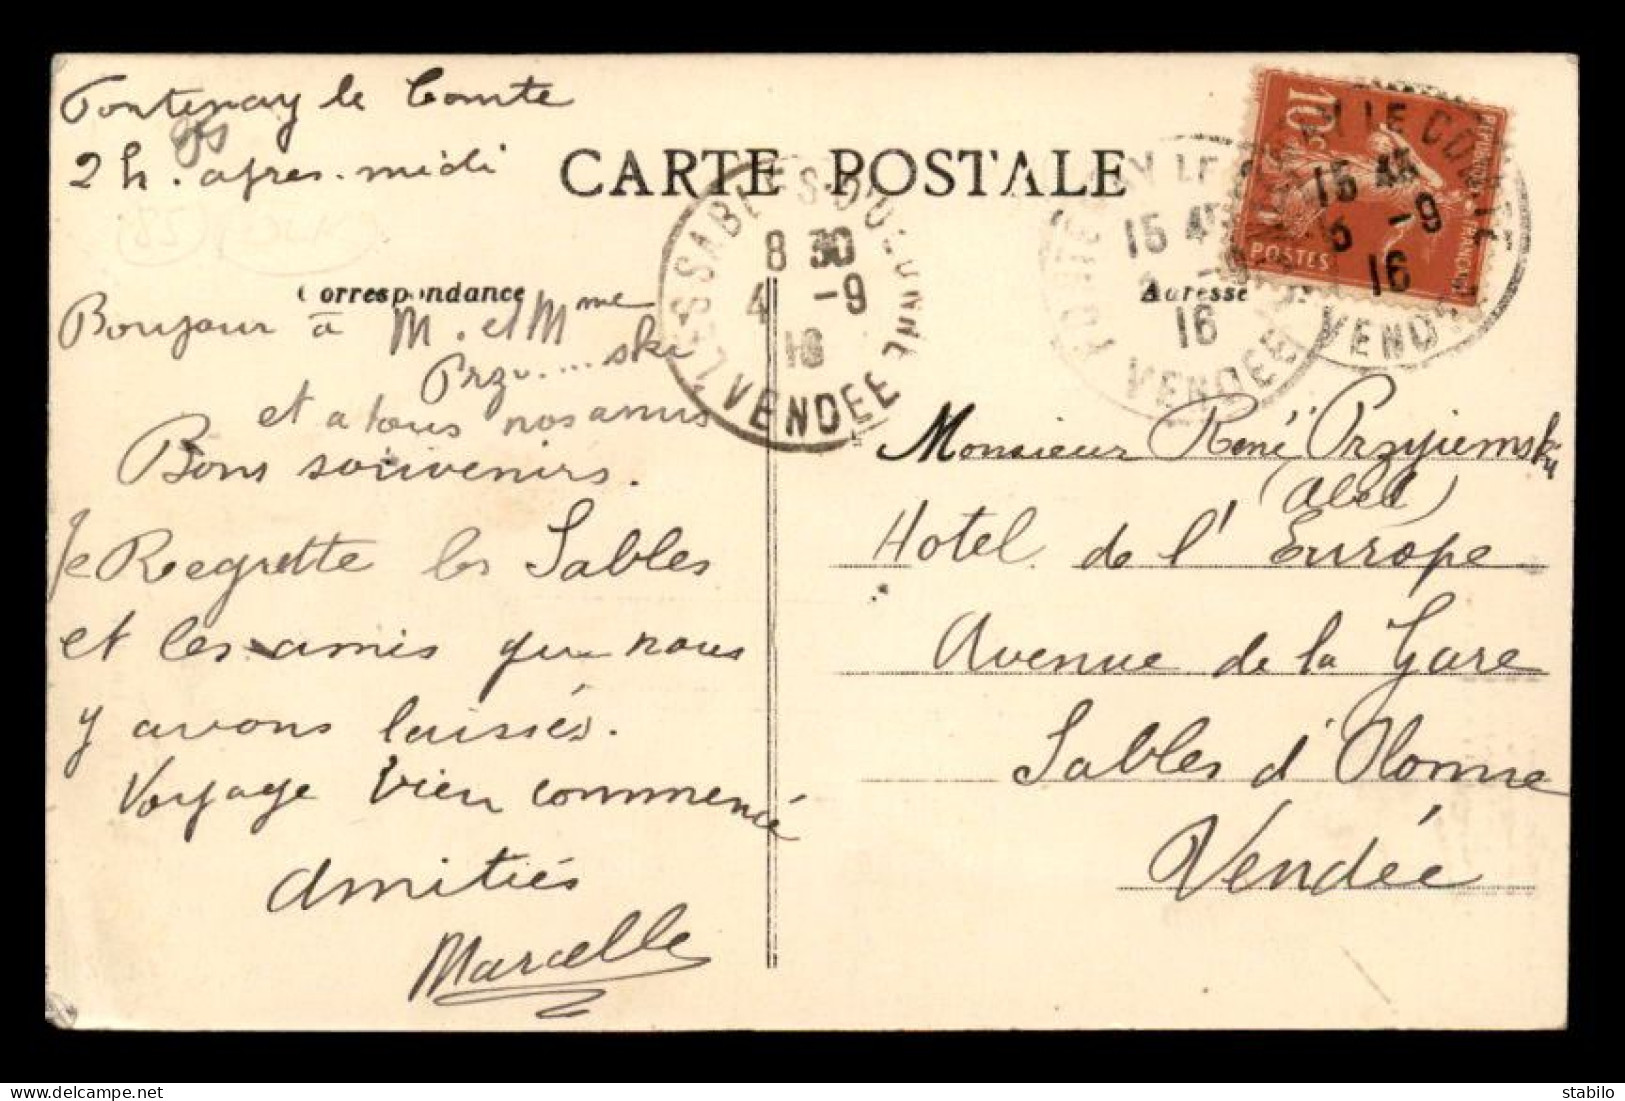 Fontenay le Comte
2 h. après-midi
CARTE POSTALE
Correspondance
Adresse
Bonjour à M. et Mme
Przy....ski
et a tous nos amis
Bons souvenirs.
Je Regrette les Sables
et les amis que nous
y avons laissés.
Voyage bien commencé
Amitiés
Marcelle
LES SABLES D'OLONNE
8 30
4 -9
16
VENDEE
FONTENAY LE COMTE
15 45
-9
16
VENDEE
15 45
-9
16
VENDEE
10c
POSTES
Monsieur René Przyiemsky
(Abel)
Hotel de l'Europe
Avenue de la Gare
Sables d'Olonne
Vendée
stabylo